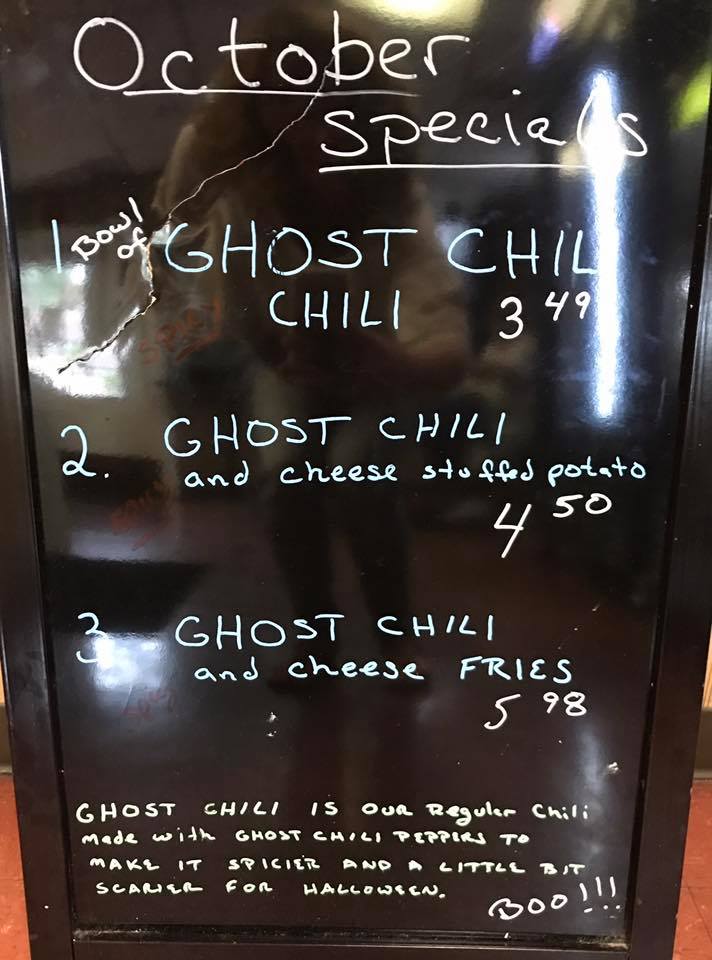 October
specials
1 Bowl of GHOST CHILI
CHILI 3 49
SPICY
2. GHOST CHILI
and cheese stuffed potato
SPICY
4 50
3 GHOST CHILI
and cheese FRIES
SPICY
5 98
GHOST CHILI IS OUR Regular Chili
made with GHOST CHILI PEPPERS TO
MAKE IT SPICIER AND A LITTLE BIT
SCARIER FOR HALLOWEEN.
BOO!!!